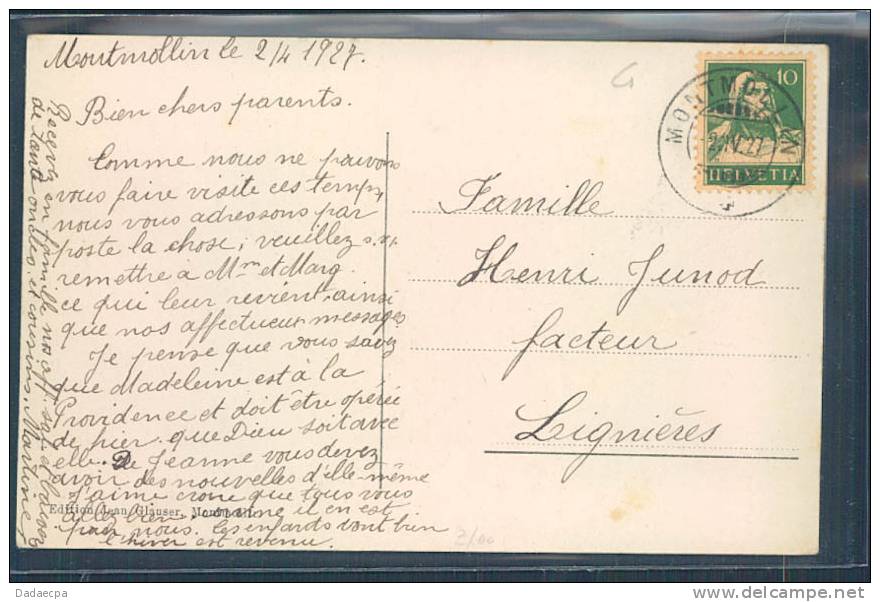 Montmollin le 2/4 1927.
Bien chers parents.
Comme nous ne pouvons
vous faire visite ces temps,
nous vous adressons par
poste la chose; veuillez s.v.
remettre à Mme et Marg.
ce qui leur revient ainsi
que nos affectueux messages
Je pense que vous savez
que Madeleine est à la
Providence et doit être opérée
de hier. que Dieu soit avec
elle. De Jeanne vous devez
avoir des nouvelles d'elle-même
J'aime croire que tous vous
allez bien. comme il en est
pour nous. les enfants vont bien
l'hiver est revenu.
Recevez en famille nos aff. sal. et baisers
de tante oncles et cousins. Marlène
Edition Jean Glauser, Montmollin
Famille
Henri Junod
facteur
Lignières
10
HELVETIA
MONTMOLLIN
2.IV.27
2/00
Dadaecpa
www.delcampe.net